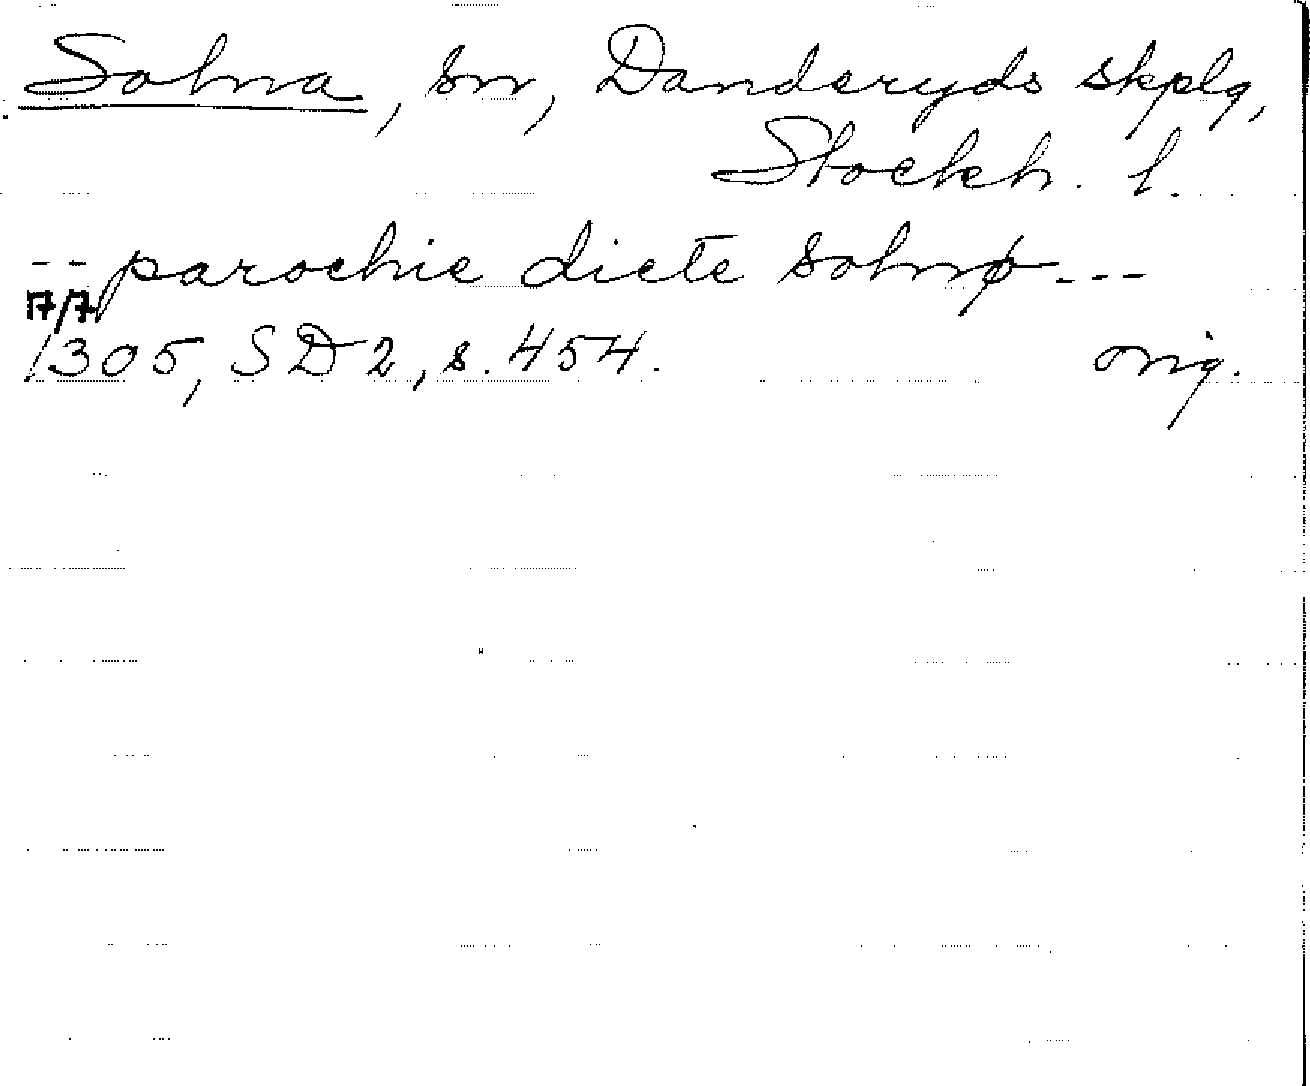 Solna, sn, Danderyds skplg,
Stockh. l.
-- parochie dicte Solnø ---
17/7
1305, SD 2, s. 454. orig.